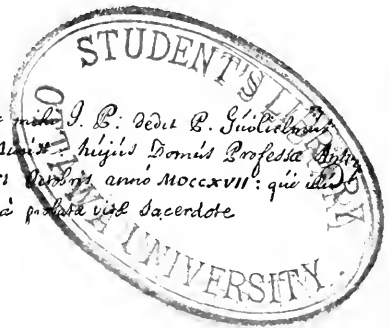 STUDENT'S LIBRARY
OTTAWA UNIVERSITY
mihi J. P: dedit P. Guilielmus
: hujús Domús Professæ
Octobris annó MDCCXVII: qúi
á probatæ vitæ Sacerdote